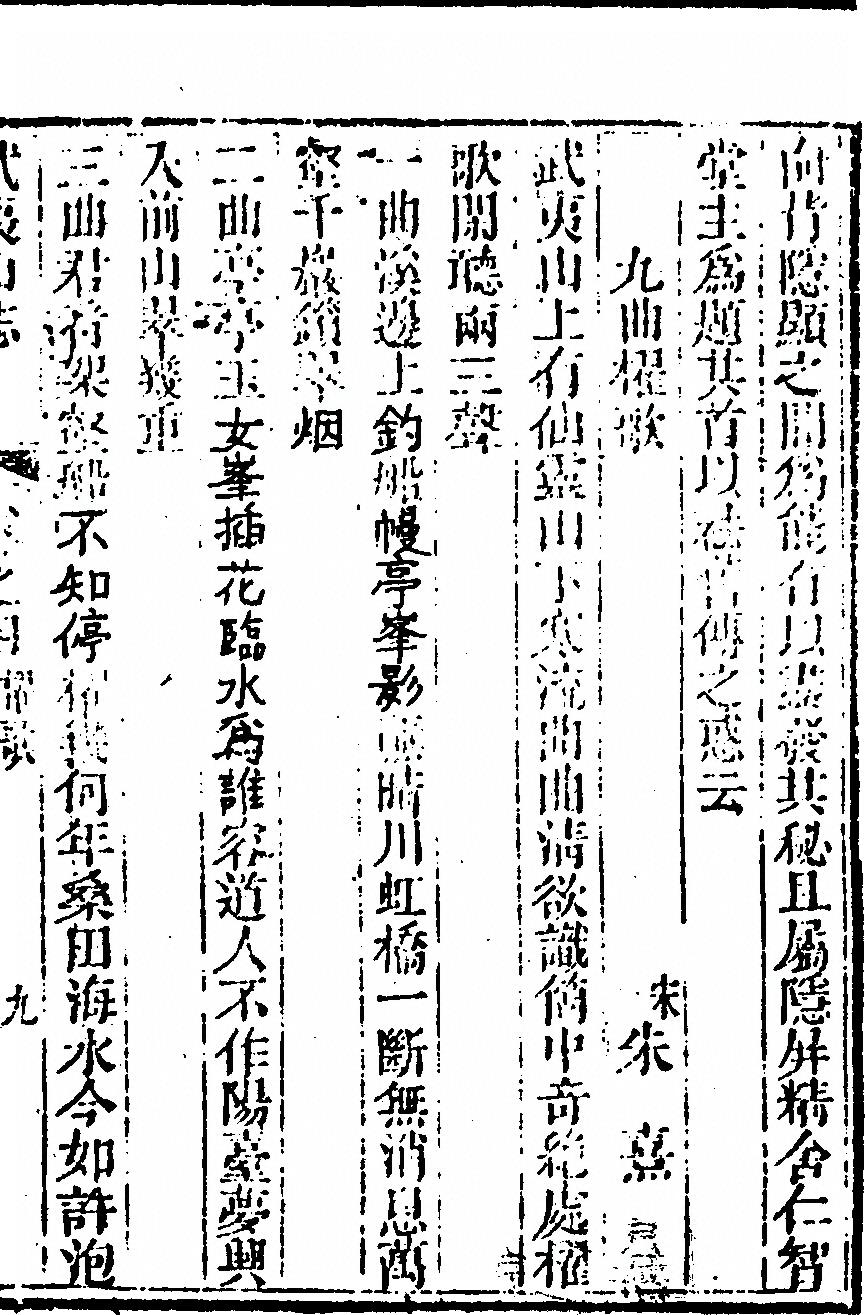 向背隱顯之間爲能有以盡發其秘且屬隱屏精舍仁智
堂主爲題其首以祛舊傳之惑云
九曲櫂歌
宋朱熹
武夷山上有仙靈山下寒流曲曲清欲識箇中奇絶處櫂
歌閒聽兩三聲
一曲溪邊上釣船幔亭峯影蘸晴川虹橋一斷無消息萬
壑千巖鎖翠烟
二曲亭亭玉女峯插花臨水爲誰容道人不作陽臺夢興
入前山翠幾重
三曲君看架壑船不知停櫂幾何年桑田海水今如許泡
武夷山志
之四 櫂歌
九